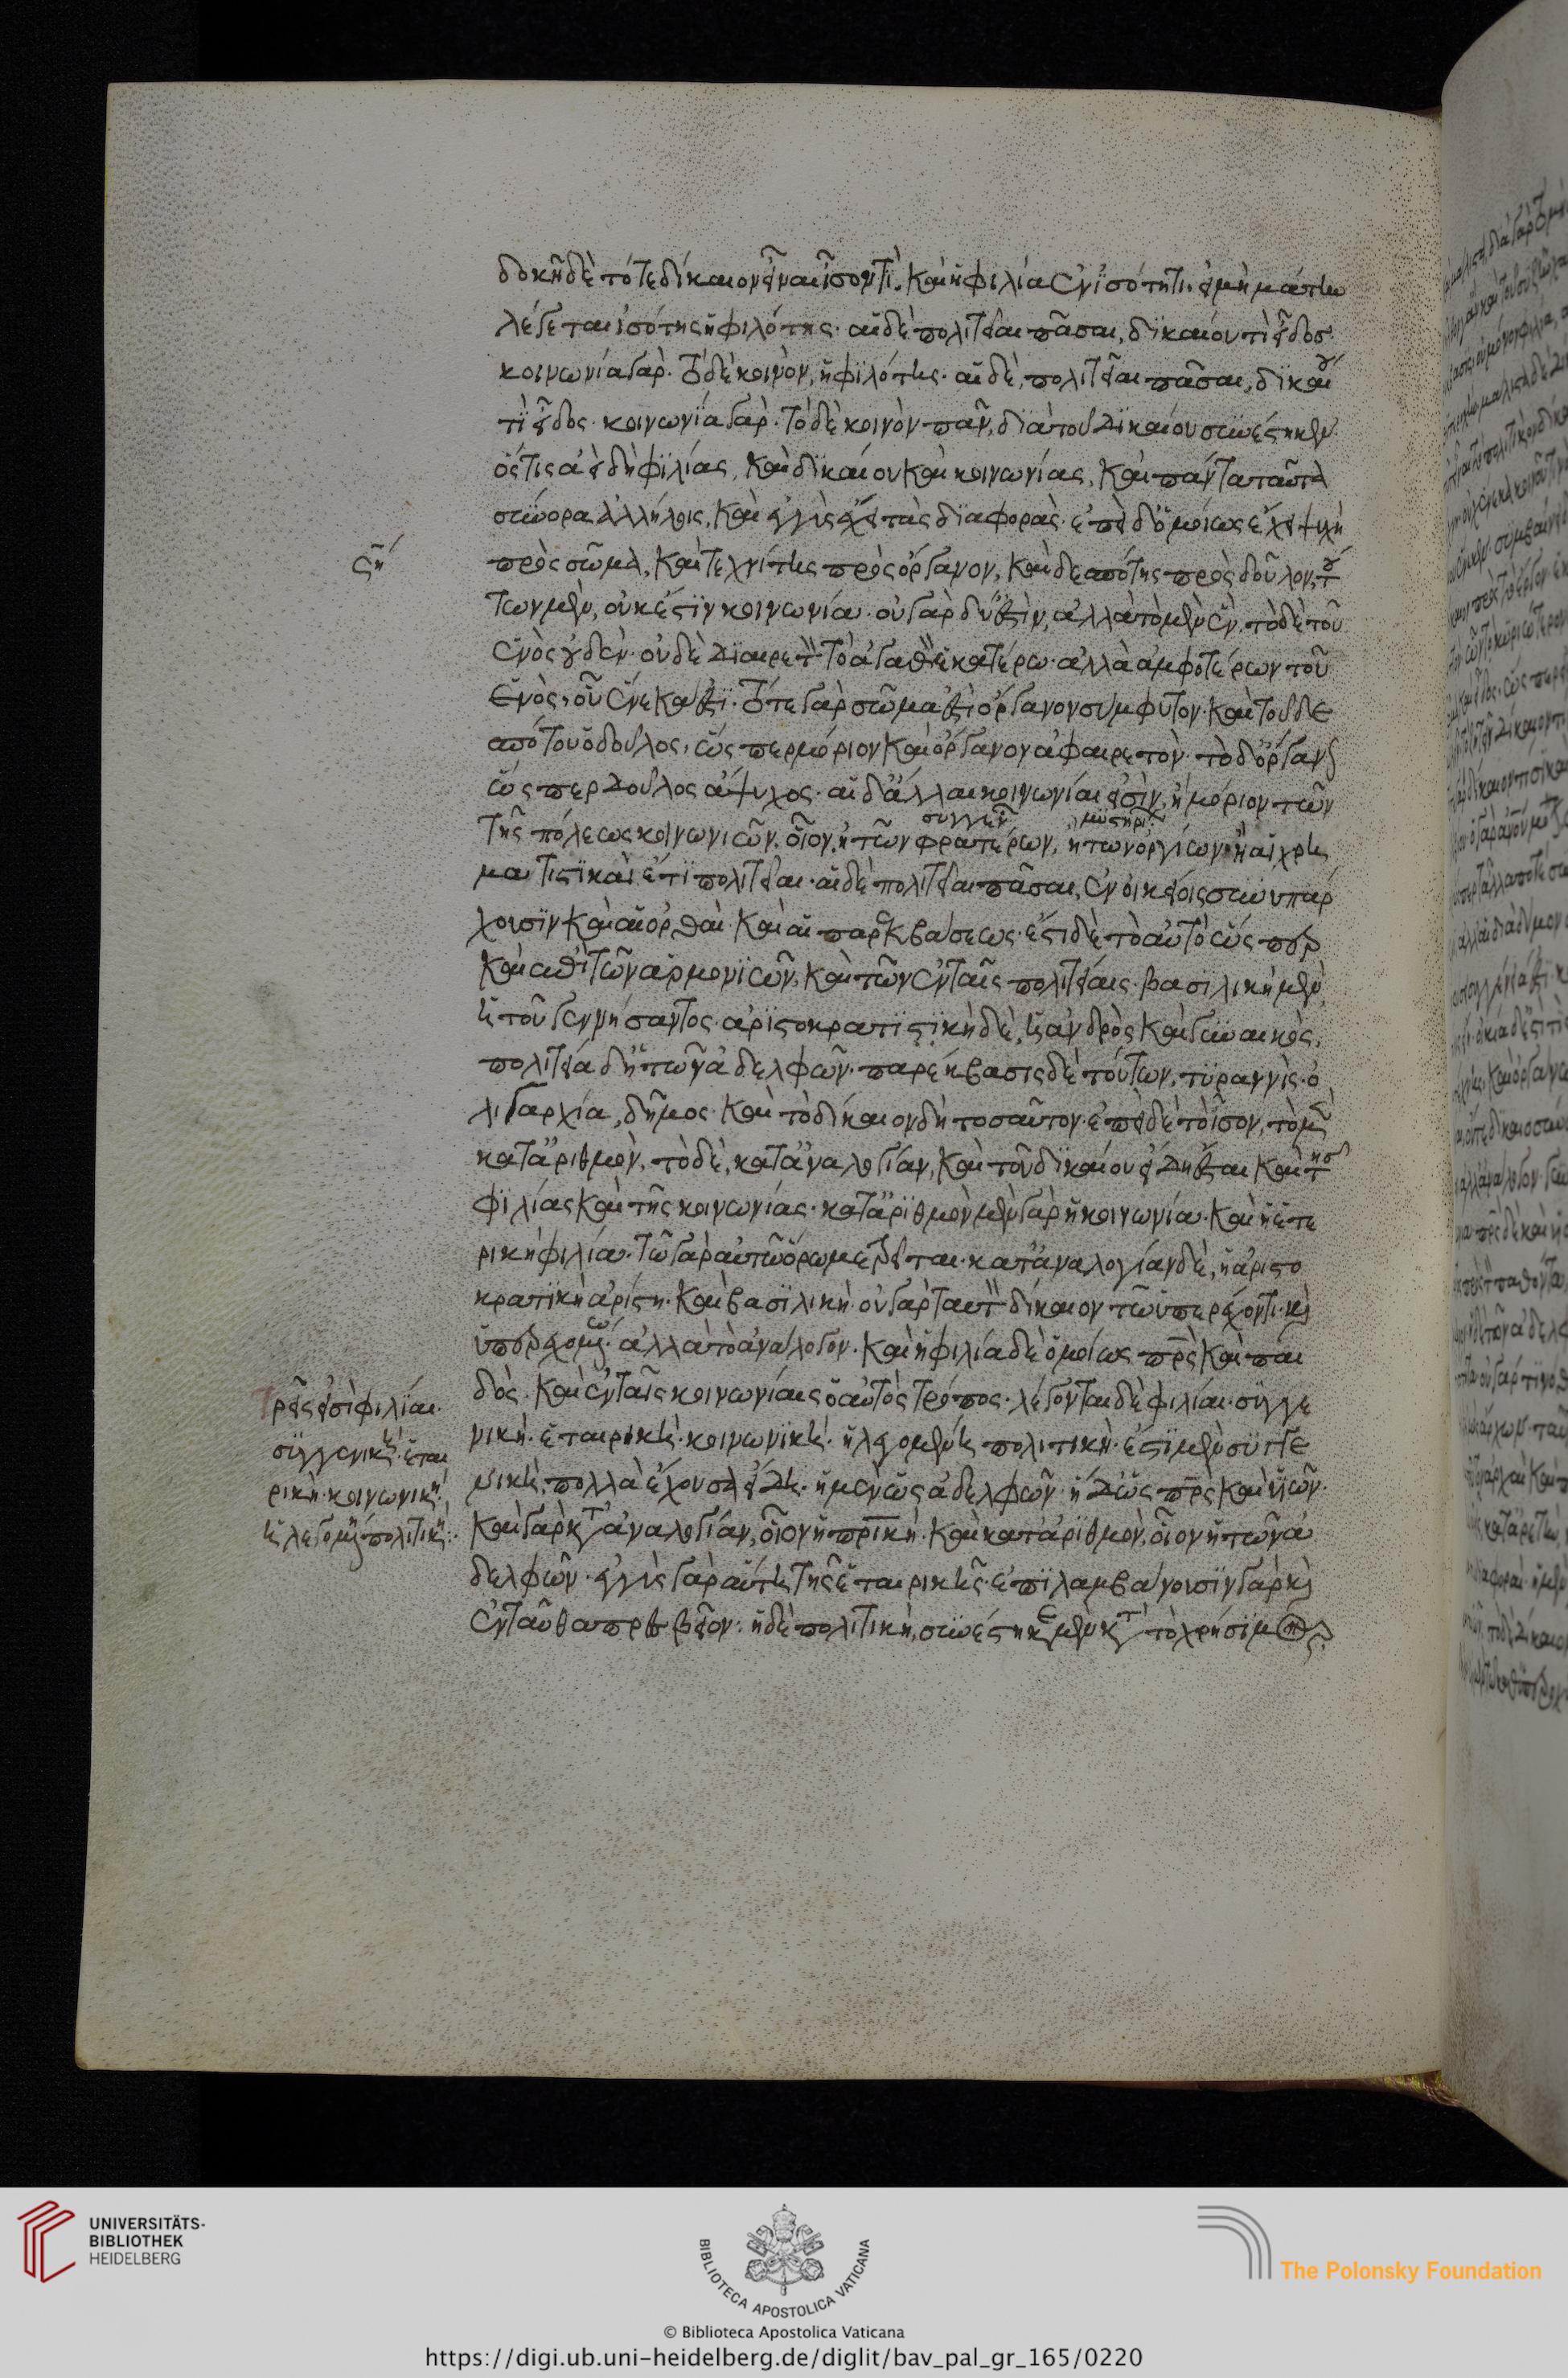 δοκεῖ δὲ τό τε δίκαιον εἶναι ἴσον τι. καὶ ἡ φιλία ἐν ἰσότητι. εἰ μὴ μάτην
λέγεται ἰσότης ἡ φιλότης. αἱ δὲ πολιτεῖαι πᾶσαι, δικαίου τι εἶδος.
κοινωνία γάρ. τὸ δὲ κοινὸν, ἡ φιλότης. αἱ δὲ, πολιτεῖαι πᾶσαι, δικαίου
τι εἶδος. κοινωνία γάρ. τὸ δὲ κοινὸν πᾶν, διὰ τοῦ δικαίου συνέστηκεν.
ὅστις ἀεὶ δὴ φιλίας, καὶ δικαίου καὶ κοινωνίας, καὶ πάντα ταῦτα
σύνορα ἀλλήλοις, καὶ ἐγγὺς ἔχει τὰς διαφοράς. ἐπεὶ δ' ὁμοίως ἔχει ψυχὴ
πρὸς σῶμα, καὶ τεχνίτης πρὸς ὄργανον, καὶ δεσπότης πρὸς δοῦλον, τού
των μὲν, οὐκ ἔστιν κοινωνία. οὐ γὰρ δύ' ἐστὶν, ἀλλὰ τὸ μὲν ἓν, τὸ δὲ τοῦ
ἑνὸς οὐδέν. οὐδὲ διαιρετὸν τὸ ἀγαθὸν ἑκατέρω. ἀλλὰ ἀμφοτέρων τοῦ
ἑνὸς, οὗ ἕνεκα ἐστί. τό τε γὰρ σῶμα ἐστὶ ὄργανον σύμφυτον. καὶ τοῦ δε
σπότου ὁ δοῦλος, ὥσπερ μόριον καὶ ὄργανον ἀφαιρετόν. τὸ δ' ὄργανον
ὥσπερ δοῦλος ἄψυχος. αἱ δ' ἄλλαι κοινωνίαι εἰσὶν, ἢ μόριον τῶν
συγγενῶν μυστηρί
τῆς πόλεως κοινωνιῶν. οἷον, ἡ τῶν φρατέρων, ἢ τῶν ὀργίων ἢ αἱ χρη
ματιστικαὶ ἔτι πολιτεῖαι. αἱ δὲ πολιτεῖαι πᾶσαι, ἐν οἰκείοις συνυπάρ
χουσιν καὶ αἱ ὀρθαὶ καὶ αἱ παρεκβάσεως. ἔστι δὲ τὸ αὐτὸ ὥσπερ
καὶ ἐπὶ τῶν ἁρμονιῶν, καὶ τῶν ἐν ταῖς πολιτείαις. βασιλικὴ μὲν
ἡ τοῦ γεννήσαντος. ἀριστοκρατιστικὴ δὲ, ἡ ἀνδρὸς καὶ γυναικός.
πολιτεία δ' ἡ τῶν ἀδελφῶν. παρέκβασις δὲ τούτων, τυραννὶς. ὀ
λιγαρχία, δῆμος. καὶ τὸ δίκαιον δὴ τοσαῦτον. ἐπεὶ δὲ τὸ ἴσον, τὸ μὲν
κατ' ἀριθμὸν, τὸ δὲ, κατ' ἀναλογίαν, καὶ τοῦ δικαίου εἴδη ἔσται καὶ τῆς
φιλίας καὶ τῆς κοινωνίας. κατ' ἀριθμὸν μὲν γὰρ ἡ κοινωνία. καὶ ἡ ἑτε
ρικὴ φιλία. τῶ γὰρ αὐτῶ ὅρω μετρεῖται. κατ' ἀναλογίαν δὲ, ἡ ἀριστο
κρατικὴ ἀρίστη. καὶ βασιλική. οὐ γὰρ ταυτὸν δίκαιον τῶ ὑπερέχοντι. καὶ
ὑπερεχομένω. ἀλλὰ τὸ ἀνάλογον. καὶ ἡ φιλία δὲ ὁμοίως πατρὸς καὶ παι
δός. καὶ ἐν ταῖς κοινωνίαις ὁ αὐτὸς τρόπος. λέγονται δὲ φιλίαι. συγγε
νική. ἑταιρική. κοινωνική. ἡ λεγομένη πολιτική. ἔστι μὲν συγγε
νικὴ, πολλὰ ἔχουσα εἴδη. ἡ μὲν ὡς ἀδελφῶν. ἡ δ' ὡς πατρὸς καὶ υἱῶν.
καὶ γὰρ κατ' ἀναλογίαν, οἷον ἡ πατρική. καὶ κατ' ἀριθμὸν, οἷον ἡ τῶν ἀ
δελφῶν. ἐγγὺς γὰρ αὕτη τῆς ἑταιρικῆς. ἐπιλαμβάνουσιν γὰρ καὶ
ἐνταῦθα πρεσβεῖον. ἡ δὲ πολιτικὴ, συνέστηκε μὲν κατὰ τὸ χρήσιμον
τρεῖς εἰσὶ φιλίαι.
συγγενική. ἑται
ρική. κοινωνική.
ἡ λεγομένη πολιτική:
UNIVERSITÄTS-
BIBLIOTHEK
HEIDELBERG
BIBLIOTECA APOSTOLICA VATICANA
© Biblioteca Apostolica Vaticana
The Polonsky Foundation
https://digi.ub.uni-heidelberg.de/diglit/bav_pal_gr_165/0220